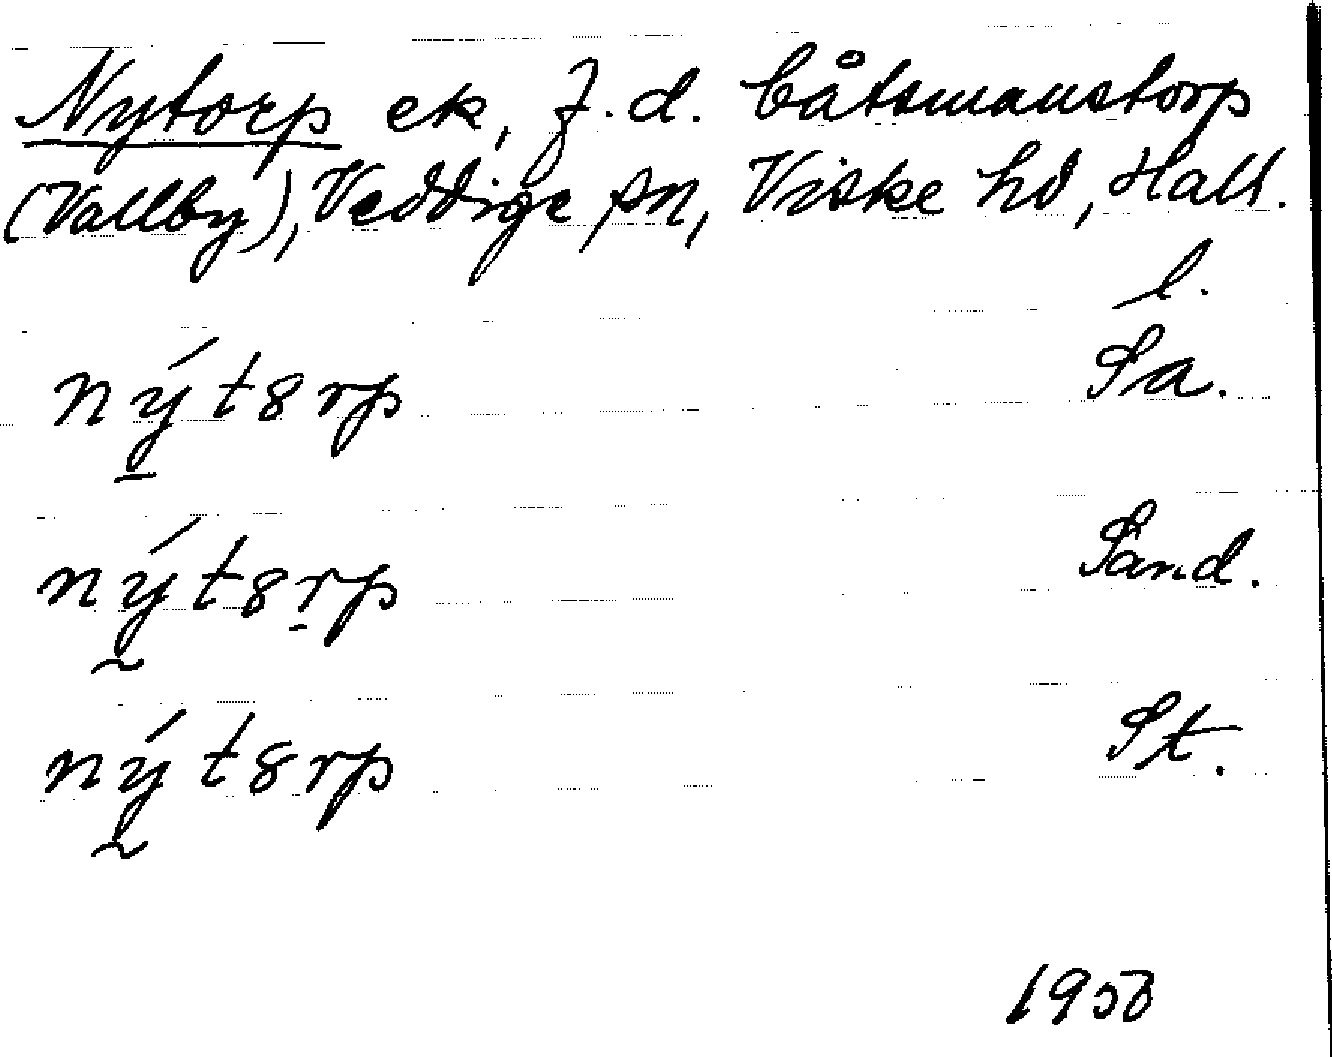 Nytorp ek, f.d. båtsmanstorp
(Vallby), Veddige sn, Viske hd, Hall.
l.
nýt8rp Sa.
nýt8rp Sand.
nýt8rp St.